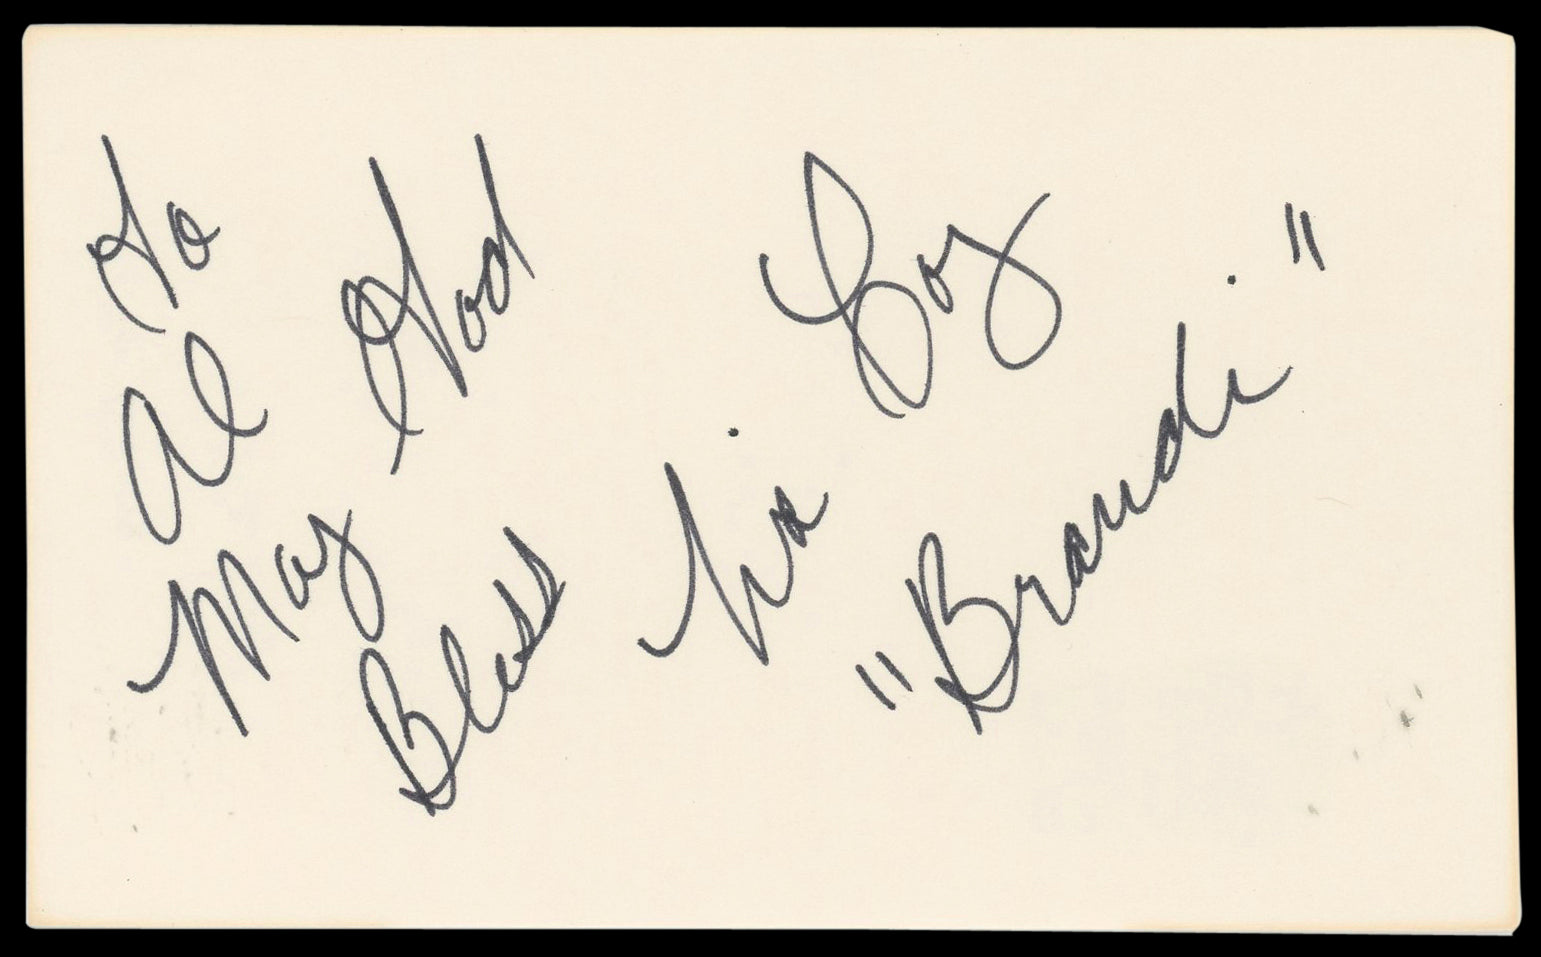 To
Al
May God
Bless
Lia Loy
"Brandi"